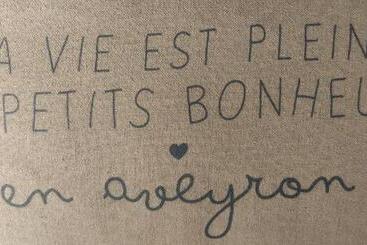 A VIE EST PLEIN
PETITS BONHEU
en aveyron